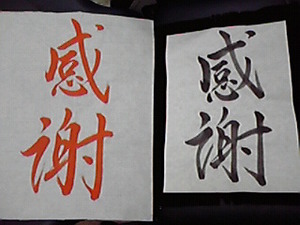 感謝
感謝